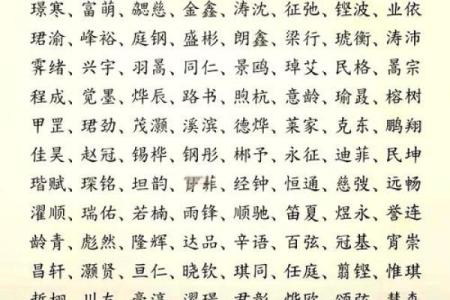 璟寒、富萌、勰慈、金鑫、涛沈、征弛、铿波、业依
珺渝、峰裕、庭钢、盛彬、朗鑫、梁行、琥衡、涛沛
霁绪、兴宇、羽暠、同仁、景鸥、琸艾、民格、暠宗
程成、觉墨、烨辰、路书、煦杭、意龄、瑜晸、榕树
甲罡、珺劲、茂灏、溪滨、德烨、菜家、克东、鹏翔
佳昊、赵冠、锡桦、钢彤、郴予、永征、迪菲、民坤
瑎赋、琛铭、坦韵、菲、经钟、恒通、慈弢、远畅
濯顺、瑞佑、若楠、雨锋、顺驰、笛夏、煜永、誉连
龄青、彪然、隆辉、达品、辛语、百弦、冠基、宵崇
昌轩、灏贤、亘仁、晓钦、琪同、任庭、翦铿、惟琪